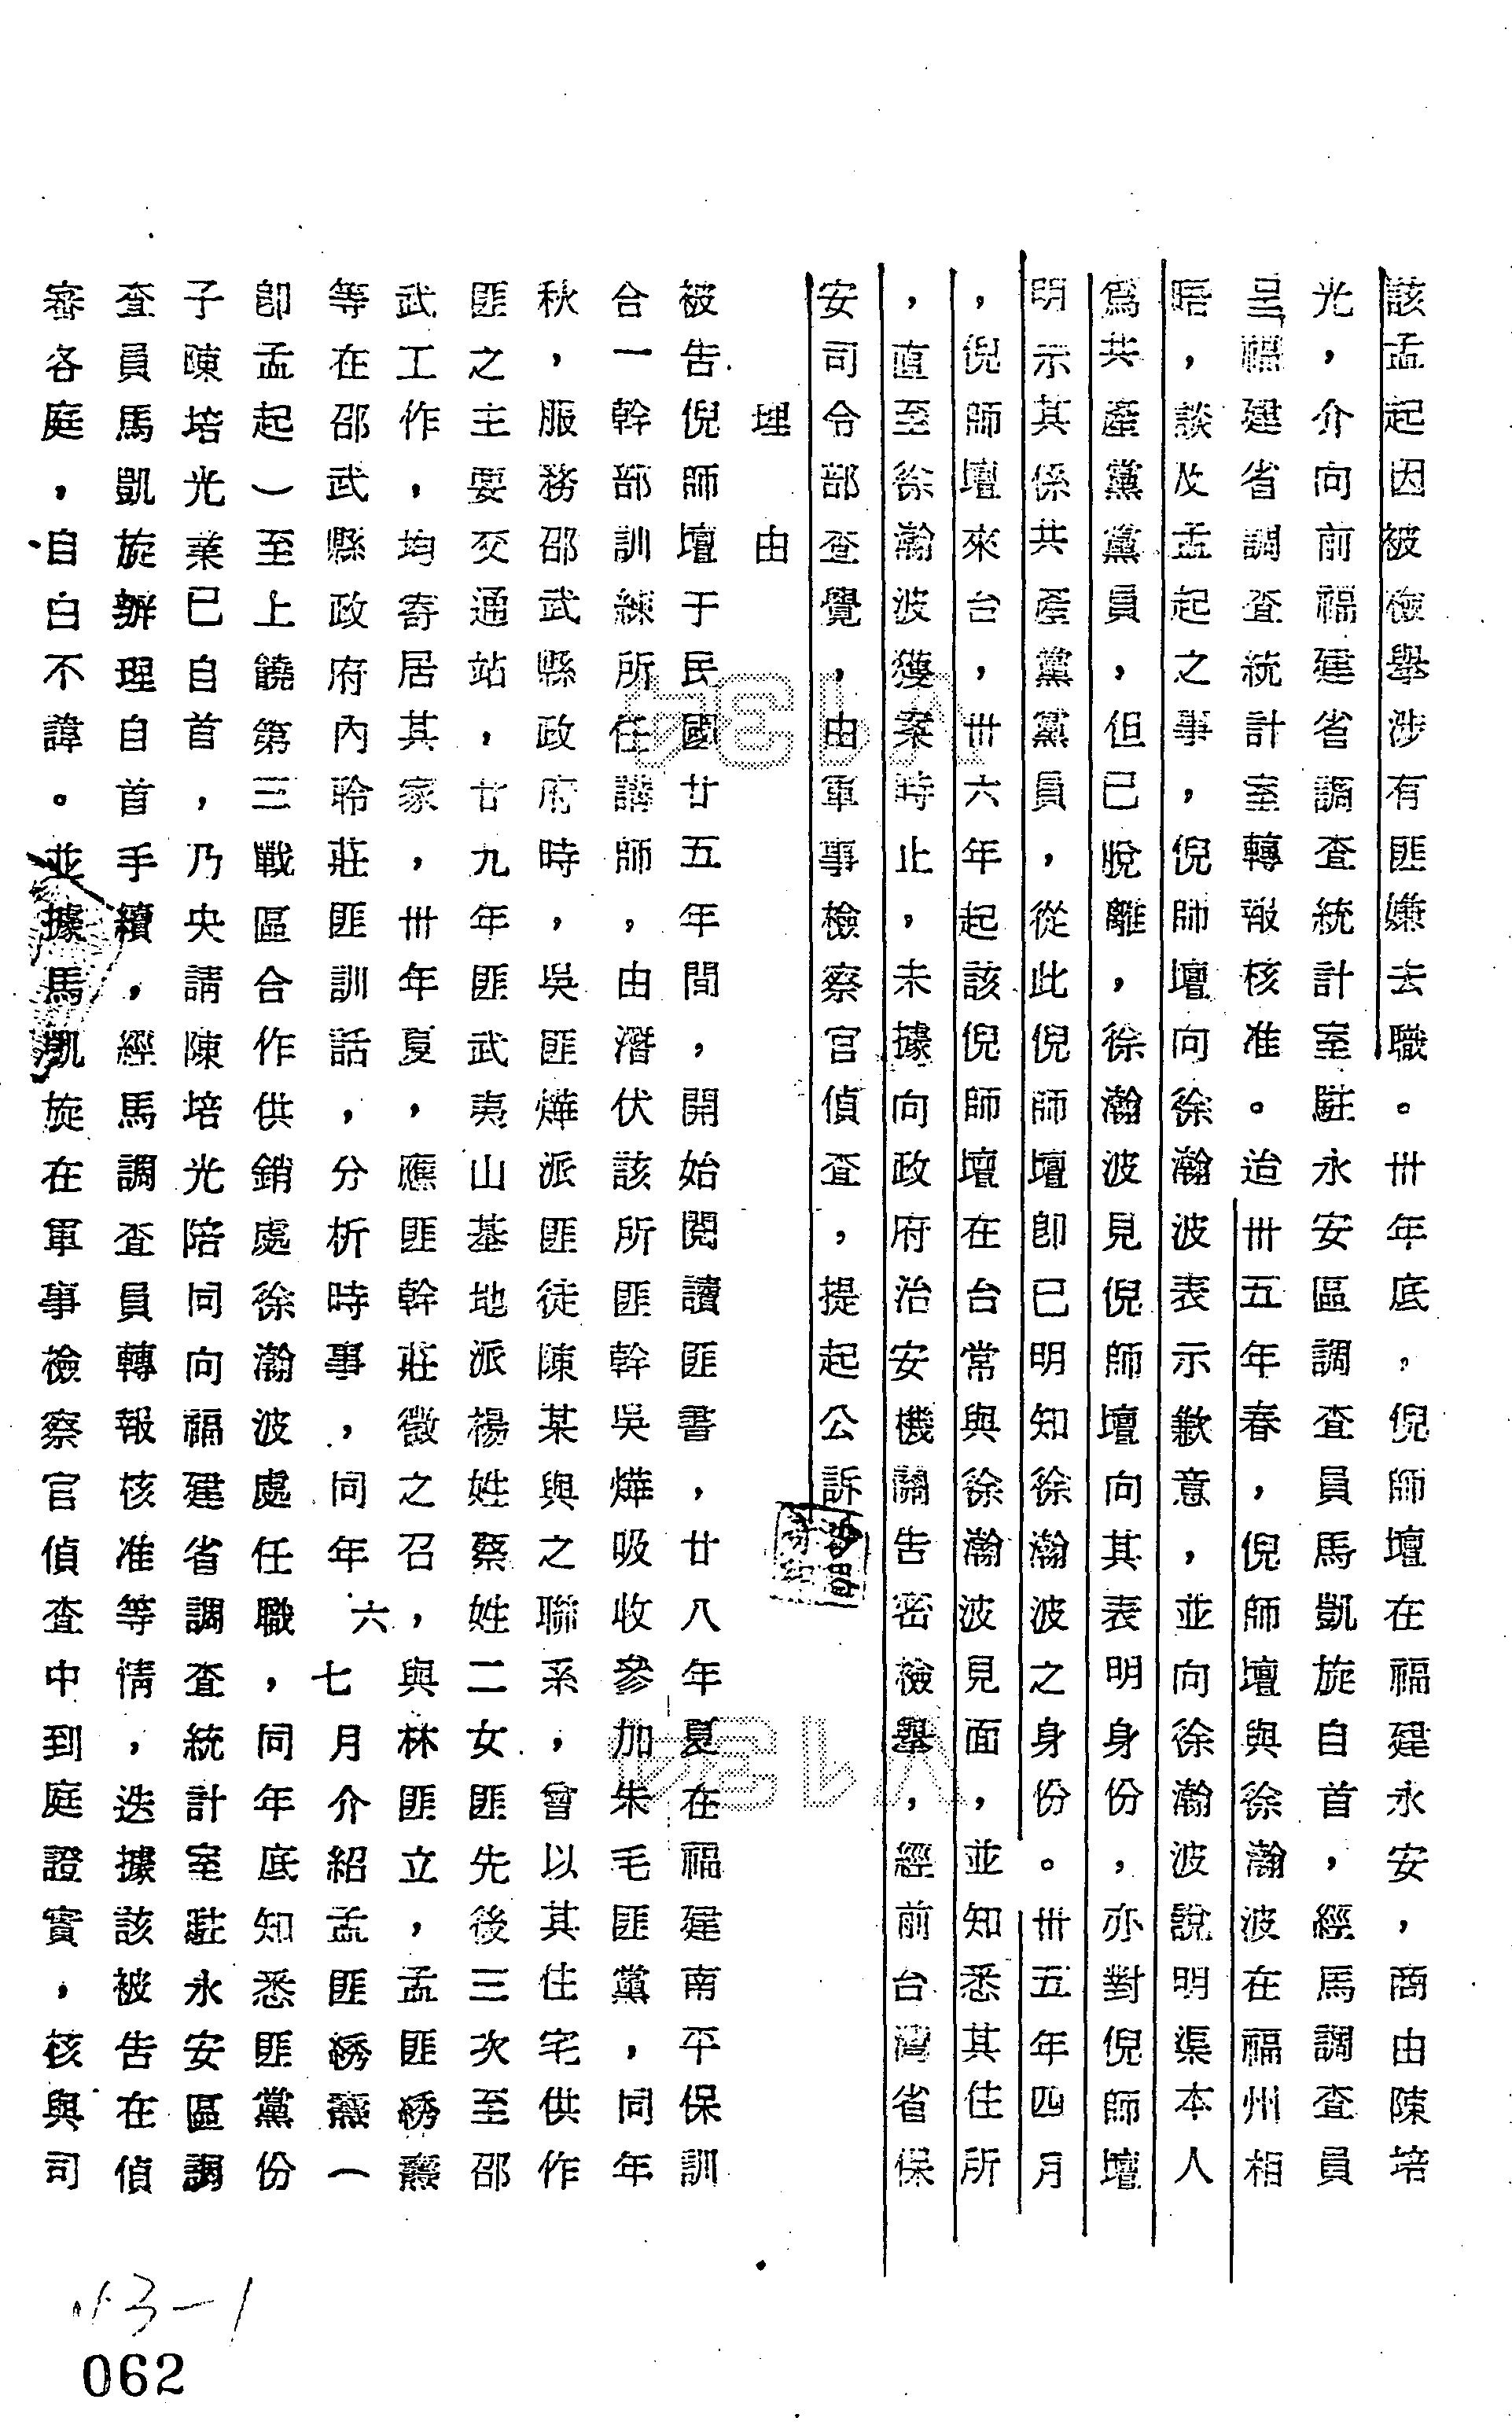 該孟起因被檢舉涉有匪嫌去職。卅年底，倪師壇在福建永安，商由陳培
光，介向前福建省調查統計室駐永安區調查員馬凱旋自首，經馬調查員
呈福建省調查統計室轉報核准。迨卅五年春，倪師壇與徐瀚波在福州相
晤，談及孟起之事，倪師壇向徐瀚波表示歉意，並向徐瀚波說明渠本人
爲共產黨黨員，但已脫離，徐瀚波見倪師壇向其表明身份，亦對倪師壇
明示其係共產黨黨員，從此倪師壇卽已明知徐瀚波之身份。卅五年四月
，倪師壇來台，卅六年起該倪師壇在台常與徐瀚波見面，並知悉其住所
，直至徐瀚波獲案時止，未據向政府治安機關告密檢舉，經前台灣省保
安司令部查覺，由軍事檢察官偵查，提起公訴
理由
被告倪師壇于民國廿五年間，開始閱讀匪書，廿八年夏在福建南平保訓
合一幹部訓練所任講師，由潛伏該所匪幹吳燁吸收參加朱毛匪黨，同年
秋，服務邵武縣政府時，吳匪燁派匪徒陳某與之聯系，曾以其住宅供作
匪之主要交通站，廿九年匪武夷山基地派楊姓蔡姓二女匪先後三次至邵
武工作，均寄居其家，卅年夏，應匪幹莊徵之召，與林匪立，孟匪綉燾
等在邵武縣政府內聆莊匪訓話，分析時事，同年六七月介紹孟匪綉燾（
卽孟起）至上饒第三戰區合作供銷處徐瀚波處任職，同年底知悉匪黨份
子陳培光業已自首，乃央請陳培光陪同向福建省調查統計室駐永安區調
查員馬凱旋辦理自首手續，經馬調查員轉報核准等情，迭據該被告在偵
審各庭，自白不諱。並據馬凱旋在軍事檢察官偵查中到庭證實，核與司
062